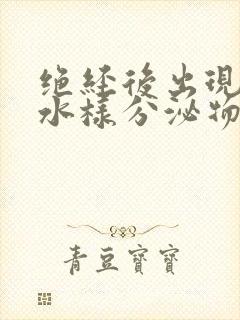 绝经後出现
水样分泌物
青豆寶寶